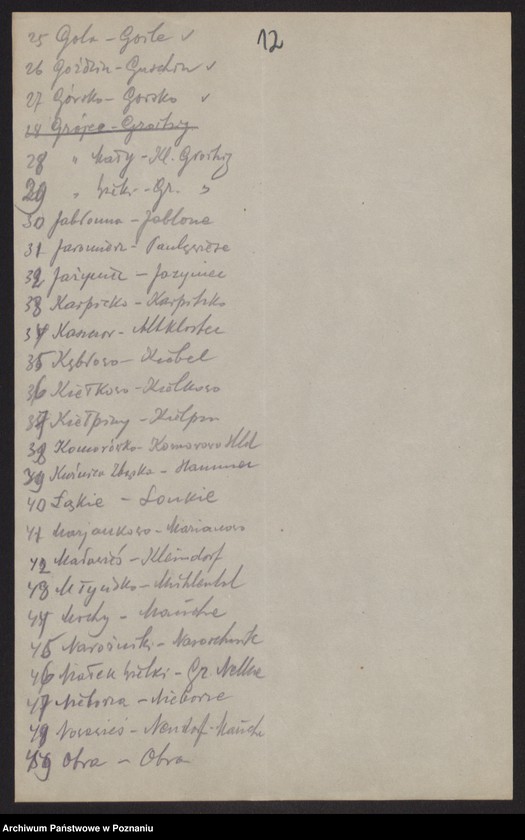 12
25 Gola - Goile ✓
26 Goździn - Guschin ✓
27 Górsko - Gorsko ✓
28 Grójec - Groitzig
28 " Mały - Kl. Groitzig
29 " Wielki - Gr. "
30 Jabłonna - Jablone
31 Jaromierz -
32 Jażyniec - Jazyniec
33 Karpicko - Karpitzko
34 Kaszczor - Altkloster
35 Kębłowo - Kiebel
36 Kiełkowo - Kielkowo
37 Kiełpiny - Kielpin
38 Komorówko - Komorowo Hld
39 Kuźnica Zbąska - Hammer
40 Łąkie - Lonkie
41 Marjankowo - Marianowo
42 Maławieś - Kleindorf
43 Młyńsko - Mühlental
44 Mochy - Mauche
45 Narożniki -
46 Niałek Wielki - Gr. Nelke
47 Nieborza - Nieborze
48 Nowawieś - Neudorf-Mauche
49 Obra - Obra
Archiwum Państwowe w Poznaniu